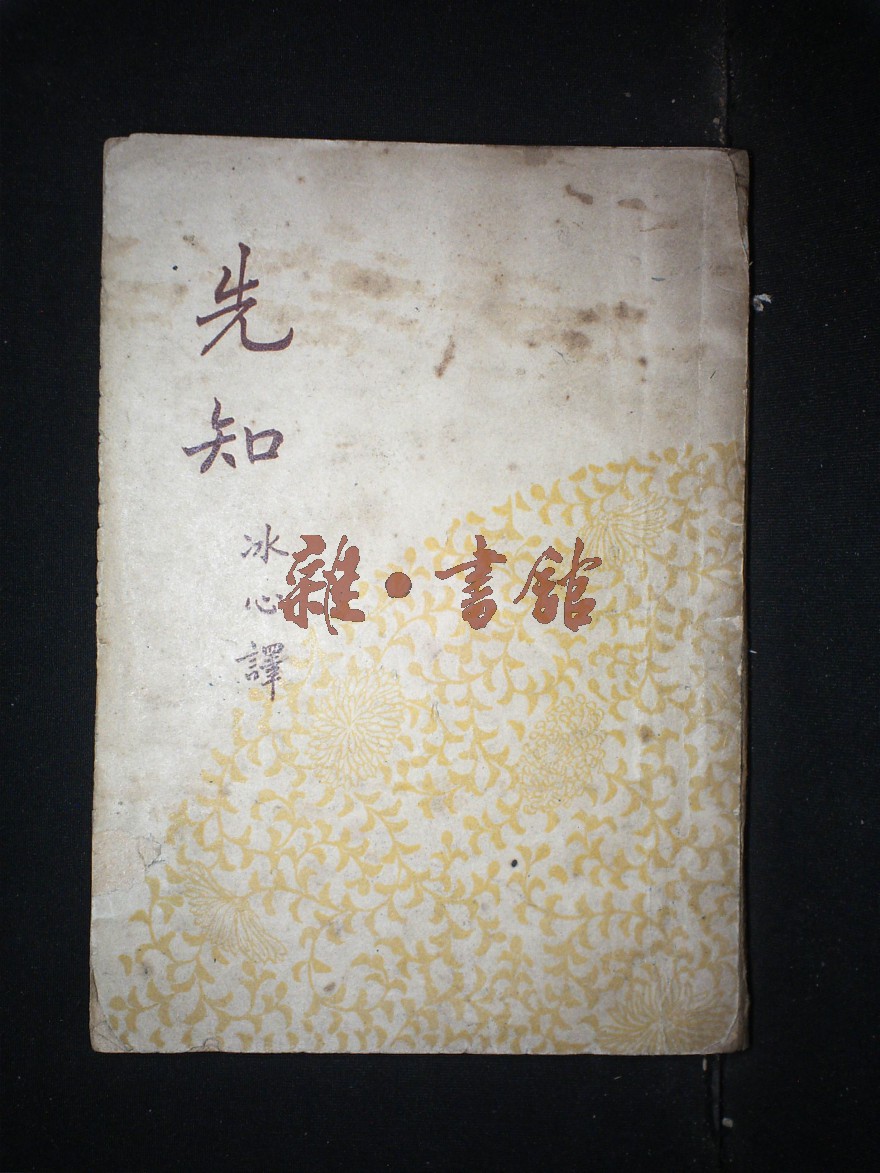 先知
冰心譯
雜•書館